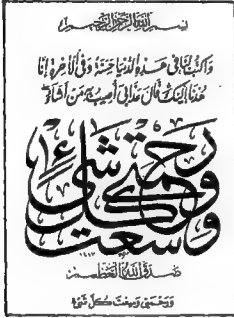 بسم الله الرحمن الرحيم
وَاكْتُبْ لَنَا فِي هَـٰذِهِ الدُّنْيَا حَسَنَةً وَفِي الْآخِرَةِ إِنَّا
هُدْنَا إِلَيْكَ قَالَ عَذَابِي أُصِيبُ بِهِ مَنْ أَشَاءُ
ورحمتي وسعت كل شيء
١٤١٧
صدق الله العظيم
وَرَحْمَتِي وَسِعَتْ كُلَّ شَيْءٍ